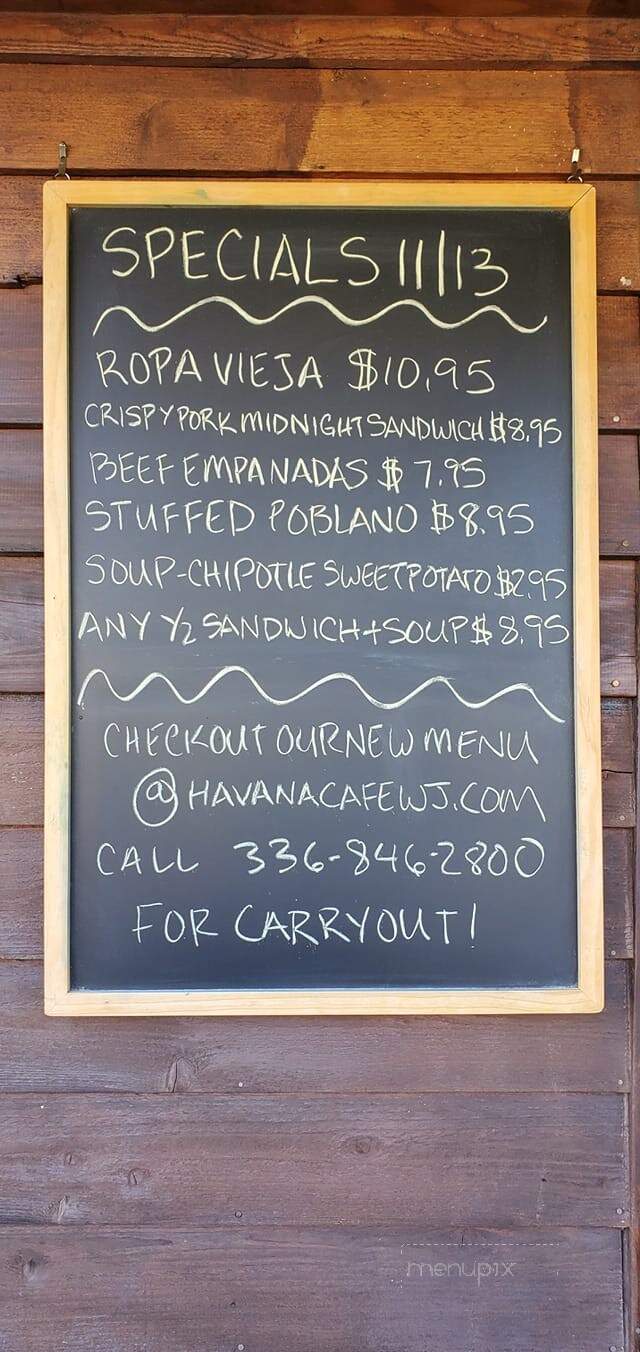 SPECIALS 11/13
ROPA VIEJA $10.95
CRISPY PORK MIDNIGHT SANDWICH $8.95
BEEF EMPANADAS $7.95
STUFFED POBLANO $8.95
SOUP-CHIPOTLE SWEET POTATO $2.95
ANY ½ SANDWICH + SOUP $8.95
CHECKOUT OUR NEW MENU
@ HAVANACAFEWJ.COM
CALL 336-846-2800
FOR CARRYOUT!
menupix